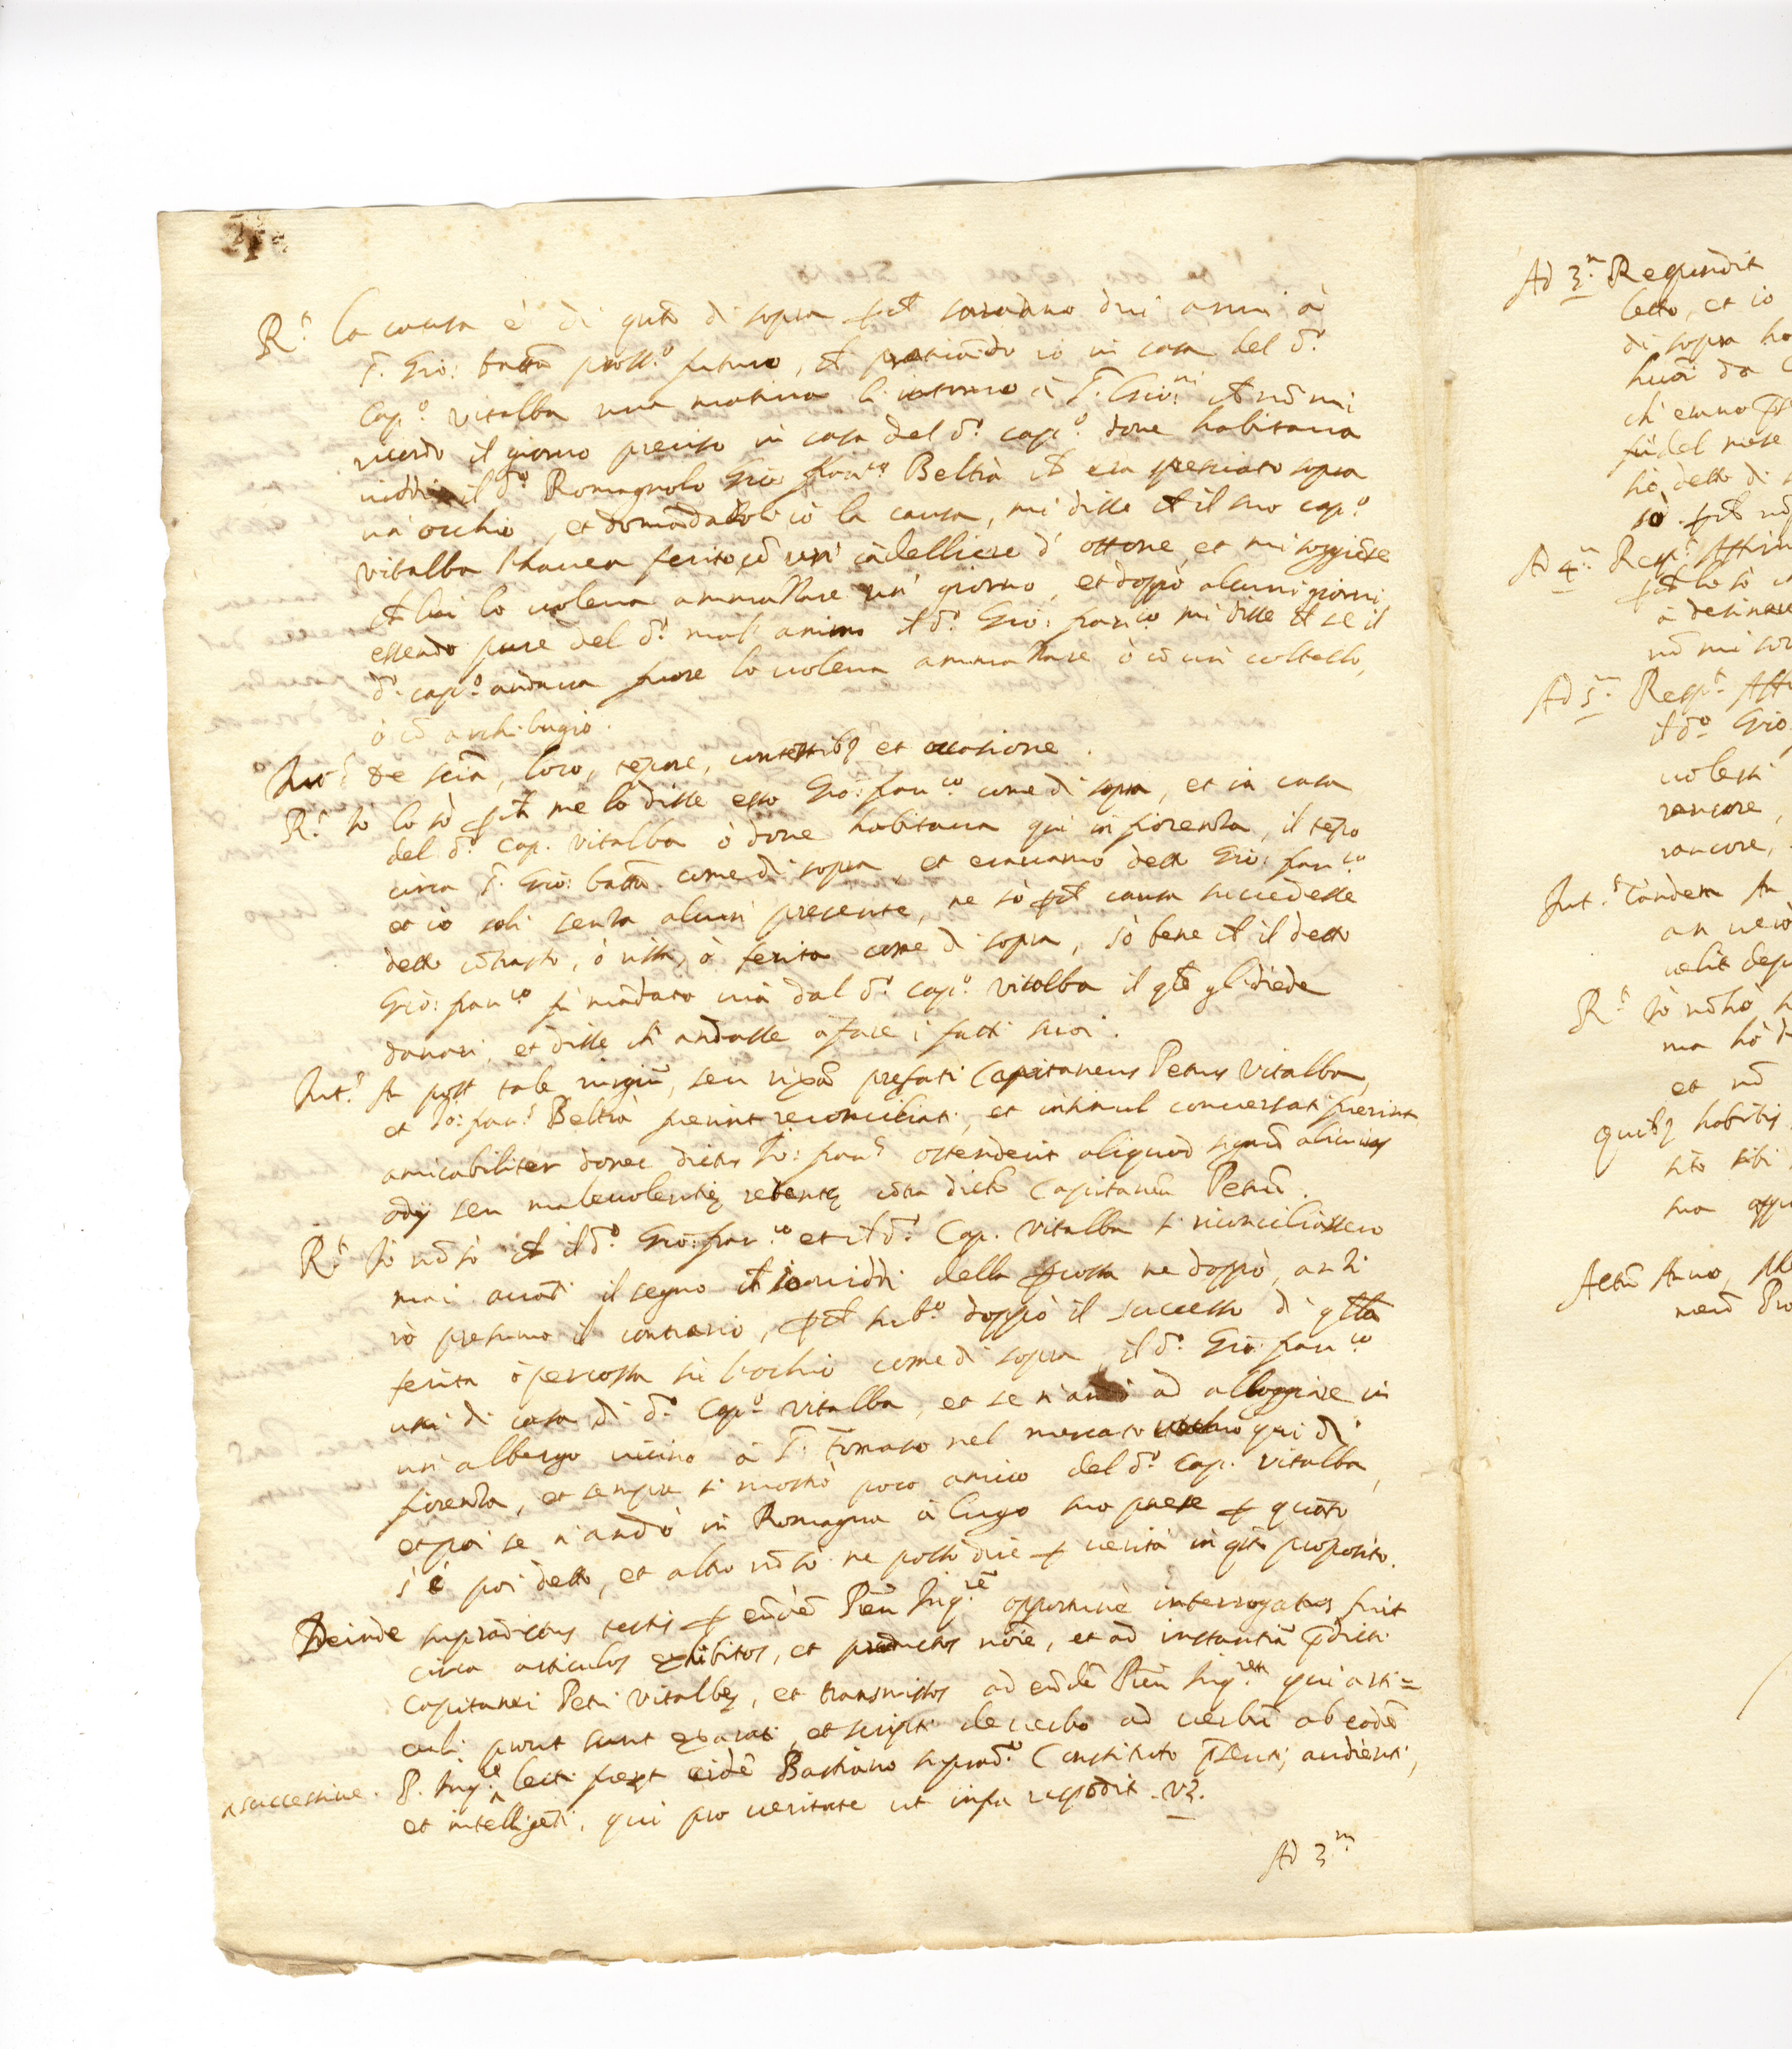 R.t La causa è di q̃sto di sopra p̲ch̃ saranno dui anni à
S. Gio: batt̃a pross.o futuro, ch̃ praticãdo io in casa del d.o
Cap.o Vitalba una matina lì intorno à S. Gio:ni ch̃ nõ mi
ricordo il giorno preciso in casa del d.o cap.o doue habitaua
uiddi il d.o Romagnolo Gio: fran.co Beltrà ch̃ era sfresiato sopra
un' occhio, et domãdãdoli io la causa, mi disse ch̃ il suo cap.o
vitalba l'hauea ferito cõ un' cãdelliere d' ottone et mi soggiõse
ch̃ lui lo uoleua ammazzare un' giorno, et doppò alcuni giorni
essendo pure del d.o mal' animo il d.o Gio: fran.co mi disse ch̃ se il
d.o cap.o andaua fuore lo uoleua ammazzare ò cõ un' coltello,
ò cõ archibugio.
Int.s de sciã, loco, tẽpore, contestibꝫ et occasione.
R.t Io lo sò p̲ch̃ me lo disse esso Gio: fran.co come di sopra, et in casa
del d.o Cap. Vitalba ò doue habitaua quì in fiorenza, il tẽpo
circa S. Gio: batt̃a come di sopra, et erauamo detto Gio: fran.co
et io soli senza alcun' presente, ne sò p̲ch̃ causa succedesse
detto cõtrasto, ò rissa, ò ferita come di sopra, sò bene ch̃ il detto
Gio: fran.co fù mãdato uia dal d.o cap.o vitalba il q̃le gli diede
danari, et disse ch̃ andasse a fare i fatti suoi.
Int.s An post tale iurgiũ, seu rixã prefati Capitaneus Petrus Vitalba,
et Io: fran.s Beltrà fuerint reconciliati, et insimul conuersati fuerint
amicabiliter donec dictus Io: fran.s ostenderit aliquod signũ alicuius
odij seu maleuolentię retentę cõtra dictũ Capitaneũ Petrũ.
R.t Io nõ sò ch̃ il d.o Gio: fran.co et il d.o Cap. Vitalba si riconciliassero
mai auãti il segno ch̃ io uiddi della p̲cossa ne doppò, anzi
io presumo il contrario, p̲ch̃ sub.o doppò il successo di q̃lla
ferita ò percossa sù l'ochio come di sopra, il d.o Gio: fran.co
uscì di casa di d.o Cap.o Vitalba, et se n'andò ad alloggiare in
un' albergo uicino à S. Tomaso nel mercato uechio quì di
fiorenza, et sempre si mostrò poco amico del d.o Cap. Vitalba,
et poi se n'andò in Romagna à Lugo suo paese p̲ quãto
s'è poi detto, et altro nõ sò ne posso dire p̲ uerità in q̃sto proposito.
Deinde supradictus testis p̲ eũdẽ P̃rem Inq.rẽ opportunè interrogatus fuit
circa articulos exhibitos, et productos nõie, et ad instantiã p̃dicti
Capitanei Petri Vitalbę, et transmissos ad eũdẽ P̃rem Inq.rem qui arti=
culi prout sunt exarati, et scripti de uerbo ad uerbũ ab eodẽ
P. Inq.re lecti fuer̃t eidẽ Bastiano suprad.o Constituto p̃senti, audienti,
^ successiue.
et intelligẽti, qui pro ueritate ut infra respõdit. vꝫ.
Ad 3.m
Ad 3.m Respondit
letto, et io
di sopra
fù del mese
hò detto di
sò. p̲ch̃ nõ
Ad 4.m Resp.t
p̲ch̃ lo sò
à desinare
nõ mi
Ad 5.m Resp.t
il d.o Gio
uolesse
rancore,
rancore,
Int.s Tandem An
an uero
uelit
R.t Io nõ hò
ma hò
et nõ
Quibꝫ habitis
sibi
sua
Actũ Anno,